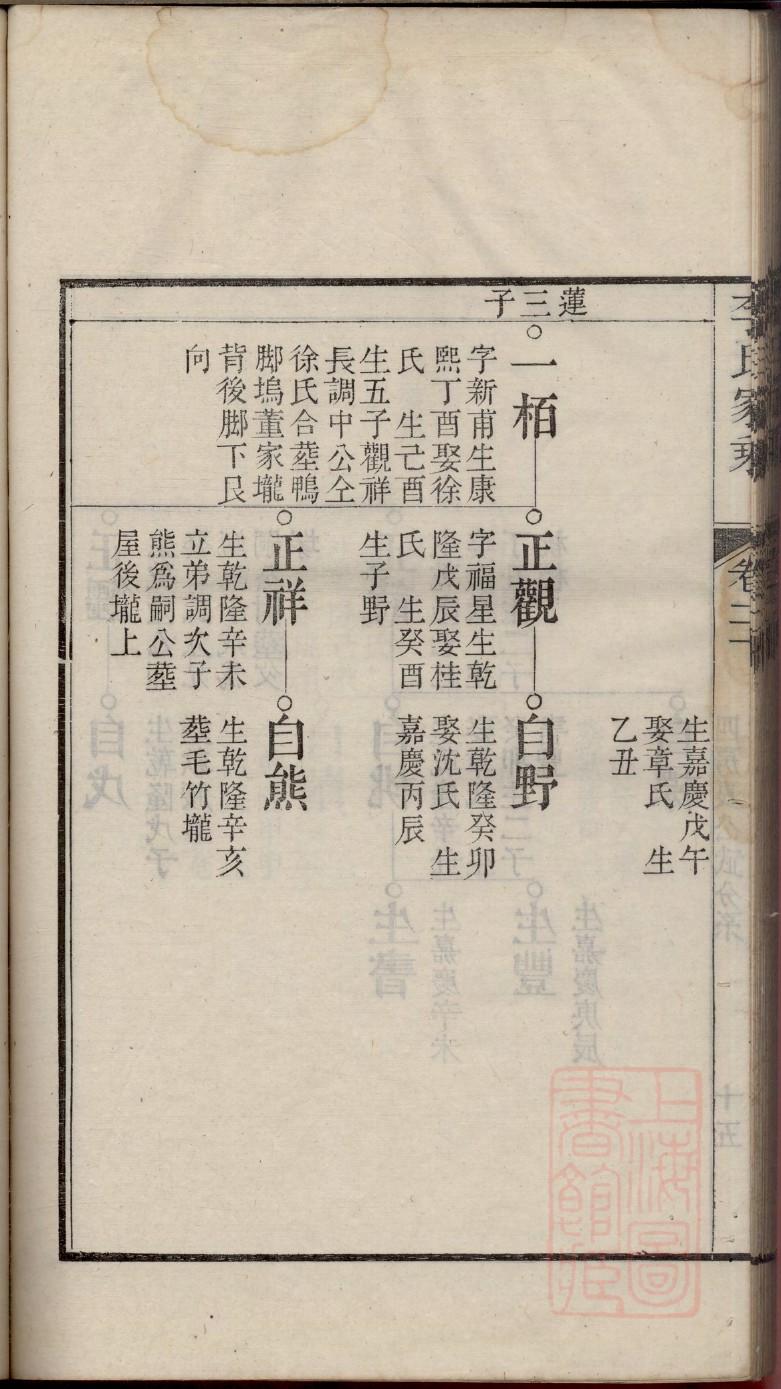 李氏家乘
卷二十
生嘉慶戊午
娶章氏 生
乙丑
蓮三子
一栢
字新甫生康
熙丁酉娶徐
氏 生己酉
生五子觀祥
長調中公仝
徐氏合塟鴨
脚塢董家壠
背後脚下艮
向
正觀
字福星生乾
隆戊辰娶桂
氏 生癸酉
生子野
自野
生乾隆癸卯
娶沈氏 生
嘉慶丙辰
正祥
生乾隆辛未
立弟調次子
熊爲嗣公塟
屋後壠上
自熊
生乾隆辛亥
塟毛竹壠
上海圖
書館藏